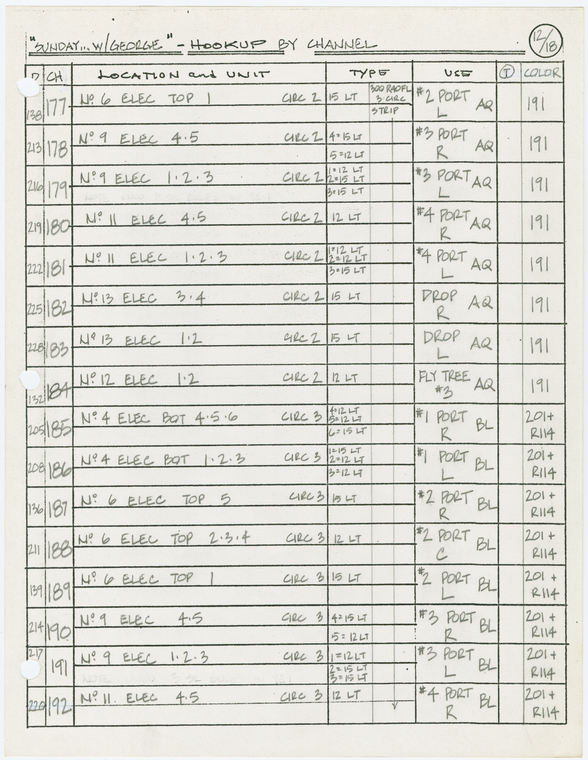 "SUNDAY... W/GEORGE" - HOOKUP BY CHANNEL 12/18
D CH LOCATION and UNIT TYPE USE I COLOR
138 177 Nº 6 ELEC TOP 1 CIRC 2 15 LT 3 CIRC 3 STRIP #2 PORT L AQ 191
213 178 Nº 9 ELEC 4·5 CIRC 2 4=15 LT 5=12 LT #3 PORT R AQ 191
216 179 Nº 9 ELEC 1·2·3 CIRC 2 1=12 LT 2=15 LT 3=15 LT #3 PORT L AQ 191
219 180 Nº 11 ELEC 4·5 CIRC 2 12 LT #4 PORT R AQ 191
222 181 Nº 11 ELEC 1·2·3 CIRC 2 1=12 LT 2=12 LT 3=15 LT #4 PORT L AQ 191
225 182 Nº 13 ELEC 3·4 CIRC 2 15 LT DROP R AQ 191
228 183 Nº 13 ELEC 1·2 CIRC 2 15 LT DROP L AQ 191
132 184 Nº 12 ELEC 1·2 CIRC 2 12 LT FLY TREE #3 AQ 191
205 185 Nº 4 ELEC BOT 4·5·6 CIRC 3 4=12 LT 5=12 LT 6=15 LT #1 PORT R BL 201+ R114
208 186 Nº 4 ELEC BOT 1·2·3 CIRC 3 1=15 LT 2=12 LT 3=12 LT #1 PORT L BL 201+ R114
136 187 Nº 6 ELEC TOP 5 CIRC 3 15 LT #2 PORT R BL 201+ R114
211 188 Nº 6 ELEC TOP 2·3·4 CIRC 3 12 LT #2 PORT C BL 201+ R114
139 189 Nº 6 ELEC TOP 1 CIRC 3 15 LT #2 PORT L BL 201+ R114
214 190 Nº 9 ELEC 4·5 CIRC 3 4=15 LT 5=12 LT #3 PORT R BL 201+ R114
217 191 Nº 9 ELEC 1·2·3 CIRC 3 1=12 LT 2=15 LT 3=15 LT #3 PORT L BL 201+ R114
220 192 Nº 11 ELEC 4·5 CIRC 3 12 LT #4 PORT R BL 201+ R114